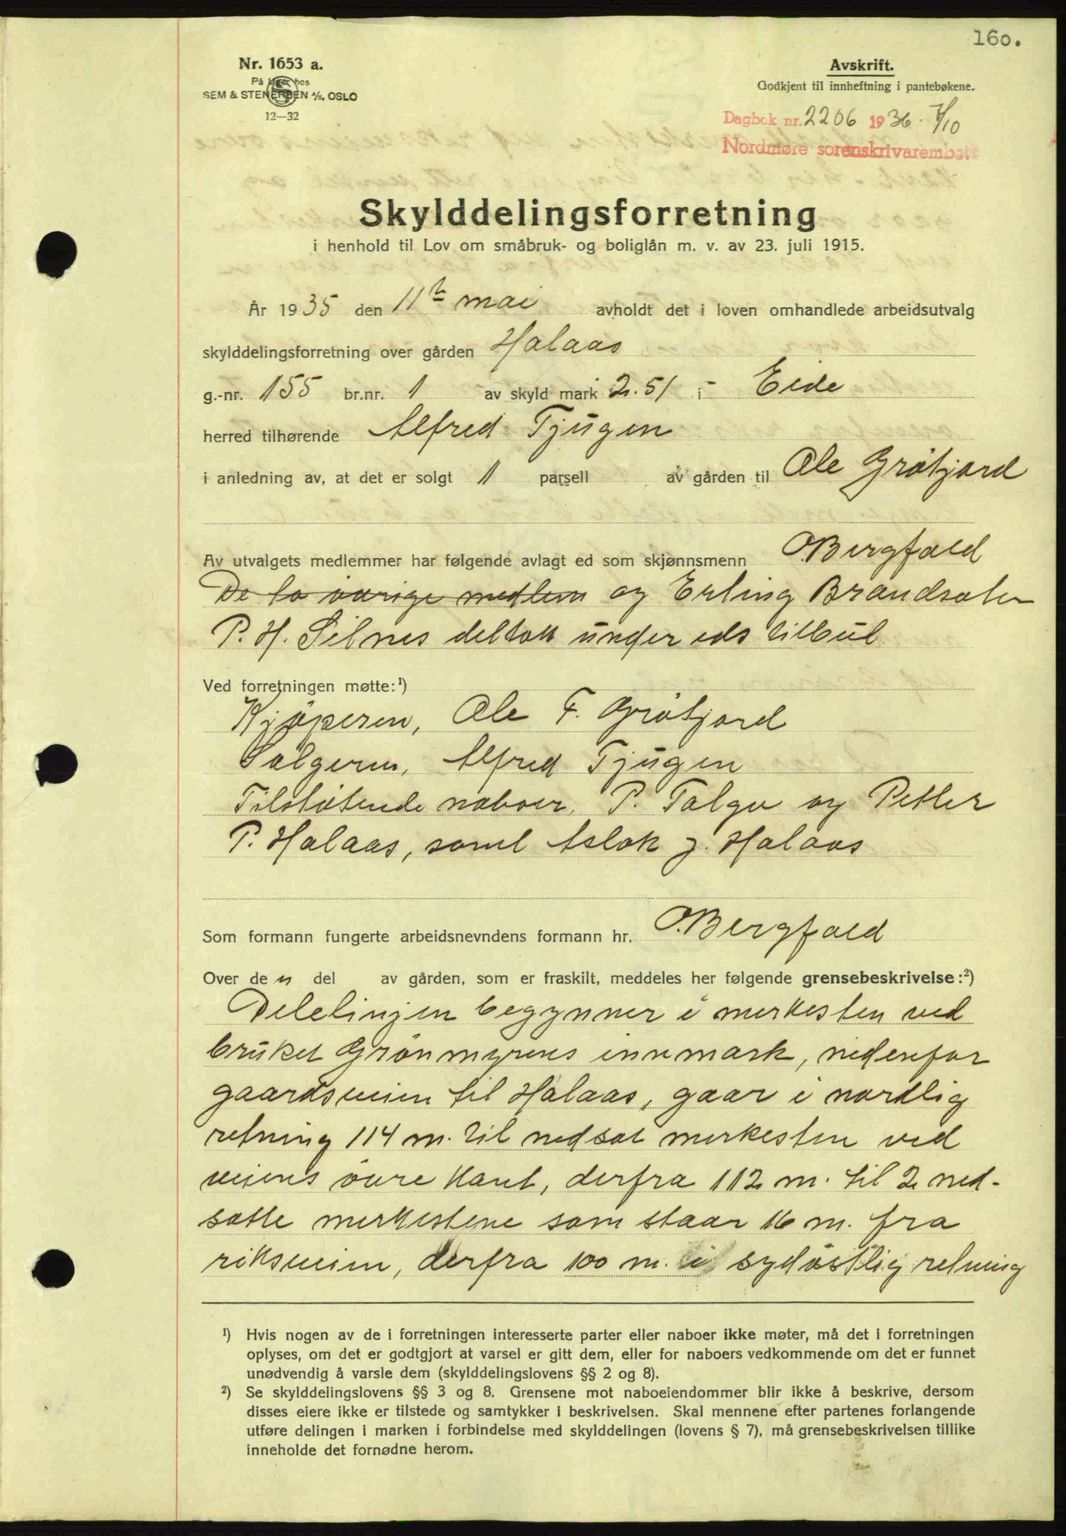 160.
Nr. 1653 a.
På lager hos
SEM & STENERSEN A/S, OSLO
12—32
Avskrift.
Godkjent til innheftning i pantebøkene.
Dagbok nr. 2206 1936 7/10
Nordmøre sorenskrivarembete
Skylddelingsforretning
i henhold til Lov om småbruk- og boliglån m. v. av 23. juli 1915.
År 1935 den 11te mai avholdt det i loven omhandlede arbeidsutvalg
skylddelingsforretning over gården Halaas
g.-nr. 155 br.nr. 1 av skyld mark 2.51 i Eide
herred tilhørende Alfred Tjugen
i anledning av, at det er solgt 1 parsell av gården til Ole Gröfjord
Av utvalgets medlemmer har følgende avlagt ed som skjønnsmenn O.Bergfald
De to övrige medlem og Erling Brandsæter
P. H. Silnes deltok under eds tilbud
Ved forretningen møtte:¹)
Kjöperen, Ole F. Gröfjord
Sælgeren, Alfred Tjugen
Tilstötende naboer, P. Talgø og Petter
P. Halaas, samt Aslak J. Halaas
Som formann fungerte arbeidsnevndens formann hr. O.Bergfald
Over de n del av gården, som er fraskilt, meddeles her følgende grensebeskrivelse:²)
Delelinjen begynner i merkesten ved
bruket Grönmyrens innmark, nedenfor
gaardsveien til Halaas, gaar i nordlig
retning 114 m. til nedsat merkesten ved
veiens övre kant, derfra 112 m. til 2 ned-
satte merkestene som staar 16 m. fra
riksveien, derfra 100 m. i sydöstlig retning
¹) Hvis nogen av de i forretningen interesserte parter eller naboer ikke møter, må det i forretningen
oplyses, om det er godtgjort at varsel er gitt dem, eller for naboers vedkommende om det er funnet
unødvendig å varsle dem (skylddelingslovens §§ 2 og 8).
²) Se skylddelingslovens §§ 3 og 8. Grensene mot naboeiendommer blir ikke å beskrive, dersom
disses eiere ikke er tilstede og samtykker i beskrivelsen. Skal mennene efter partenes forlangende
utføre delingen i marken i forbindelse med skylddelingen (lovens § 7), må grensebeskrivelsen tillike
inneholde det fornødne herom.